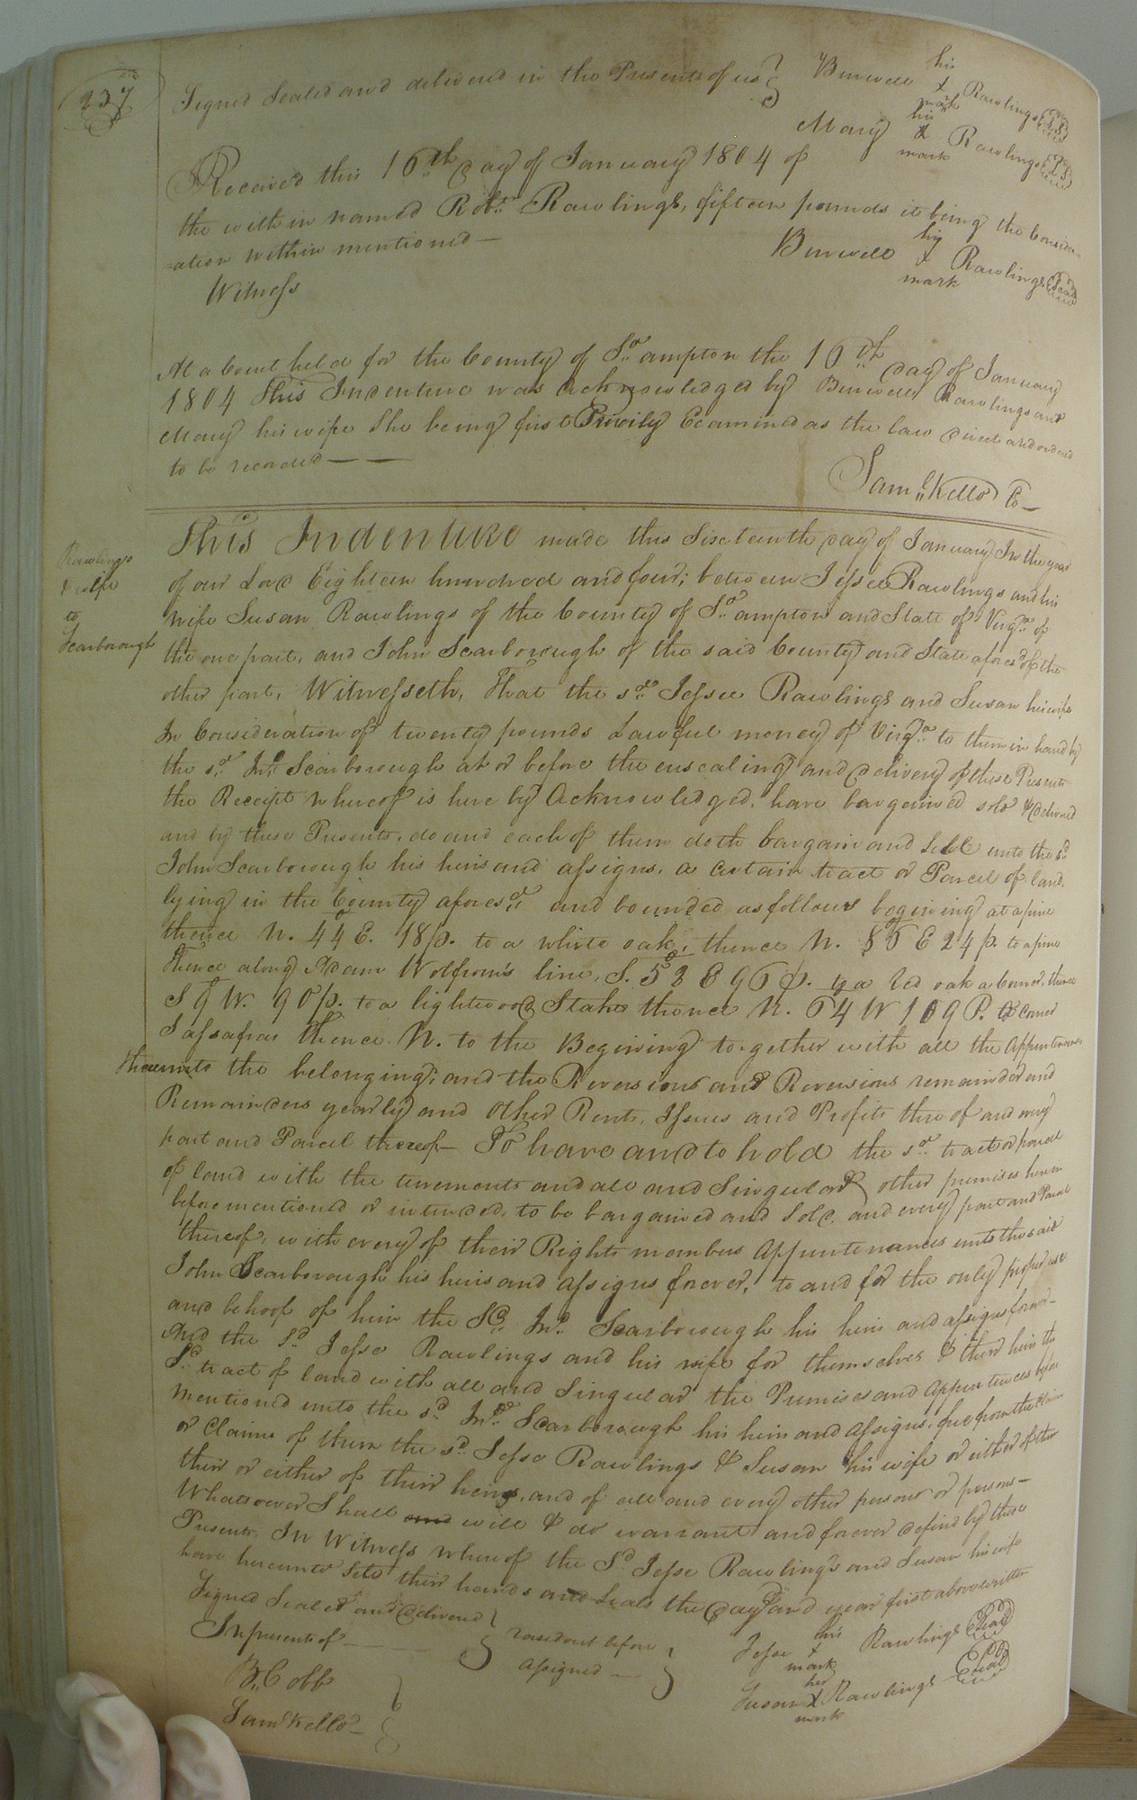 237
Signed Sealed and delivered in the Presents of us } Burwell his x mark Rawlings LS
Mary his x mark Rawlings LS
Received this 16th day of January 1804 of
the within named Robt. Rawlings, fifteen pounds it being the Consider-
ation within mentioned — Burwell his x mark Rawlings Seal
Witness
At a Court held for the County of So.ampton the 16th day of January
1804 This Indenture was acknowledged by Burwell Rawlings and
Mary his wife She being first Privily Examined as the law direct and ordered
to be recorded — —
Saml. Kello Co
Rawlings
& wife
to
Scarborough
This Indenture made this Sixteenth day of January In the year
of our Lord Eighteen hundred and four; between Jessee Rawlings and his
wife Susan Rawlings of the County of So.ampton and State of Virga. of
the one part, and John Scarborough of the said County and State aforesd. of the
other part, Witnesseth, That the sd. Jessee Rawlings and Susan his wife
In Consideration of twenty pounds Lawful money of Virga. to them in hand by
the sd. Jno. Scarborough at or before the ensealing and delivery of these Presents
the Receipt whereof is here by Acknowledged, have bargained sold & delivered
and by these Presents, do and each of them doth bargain and Sell unto the sd.
John Scarborough his heirs and assigns, a certain tract or Parcel of land,
lying in the County aforesd. and bounded as follows begining at a pine
thence N. 44 E. 18 p. to a white oak, thence N. E 24 p. to a pine
Thence along Adam Wolfrom's line, S. 53 E 96 p. to a red oak a corner, thence
S 9 W. 90 p. to a lightwood Stake thence N. 64 W 109 P. corner
Sassafras thence N. to the Begining together with all the Appurtenances
thereunto the belonging, and the Reversions and Reversions remainder and
Remainders yearly and other Rents, Issues and Profits thereof and every
part and Parcel thereof — To have and to hold the sd. tract or parcel
of land with the tenements and all and Singular other premises herein
before mentioned or intended, to be bargained and Sold, and every part and Parcel
thereof, with every of their Rights members Appurtenances unto the said
John Scarborough his heirs and Assigns forever, to and for the only proper use
and behoof of him the Sd. Jno. Scarborough his heirs and assigns forever —
And the Sd. Jesse Rawlings and his wife for themselves & their heirs the
Sd. tract of land with all and Singular the Premises and Appurtences before
mentioned unto the sd. Jno. Scarborough his heirs and Assigns, free from the claim
or Claims of them the sd. Jesse Rawlings & Susan his wife or either of them
their or either of their heirs, and of all and every other person or persons —
Whatsoever Shall and will & do warrant and forever defend by these
Presents In Witness whereof the Sd. Jesse Rawlings and Susan his wife
have hereunto Sett their hands and Seals the day and year first above written
Signed Sealed and Delivered }
In presents of —
before
assigned — }
Jesse his x mark Rawlings Seal
Susan her x mark Rawlings Seal
B. Cobb
Saml. Kello }